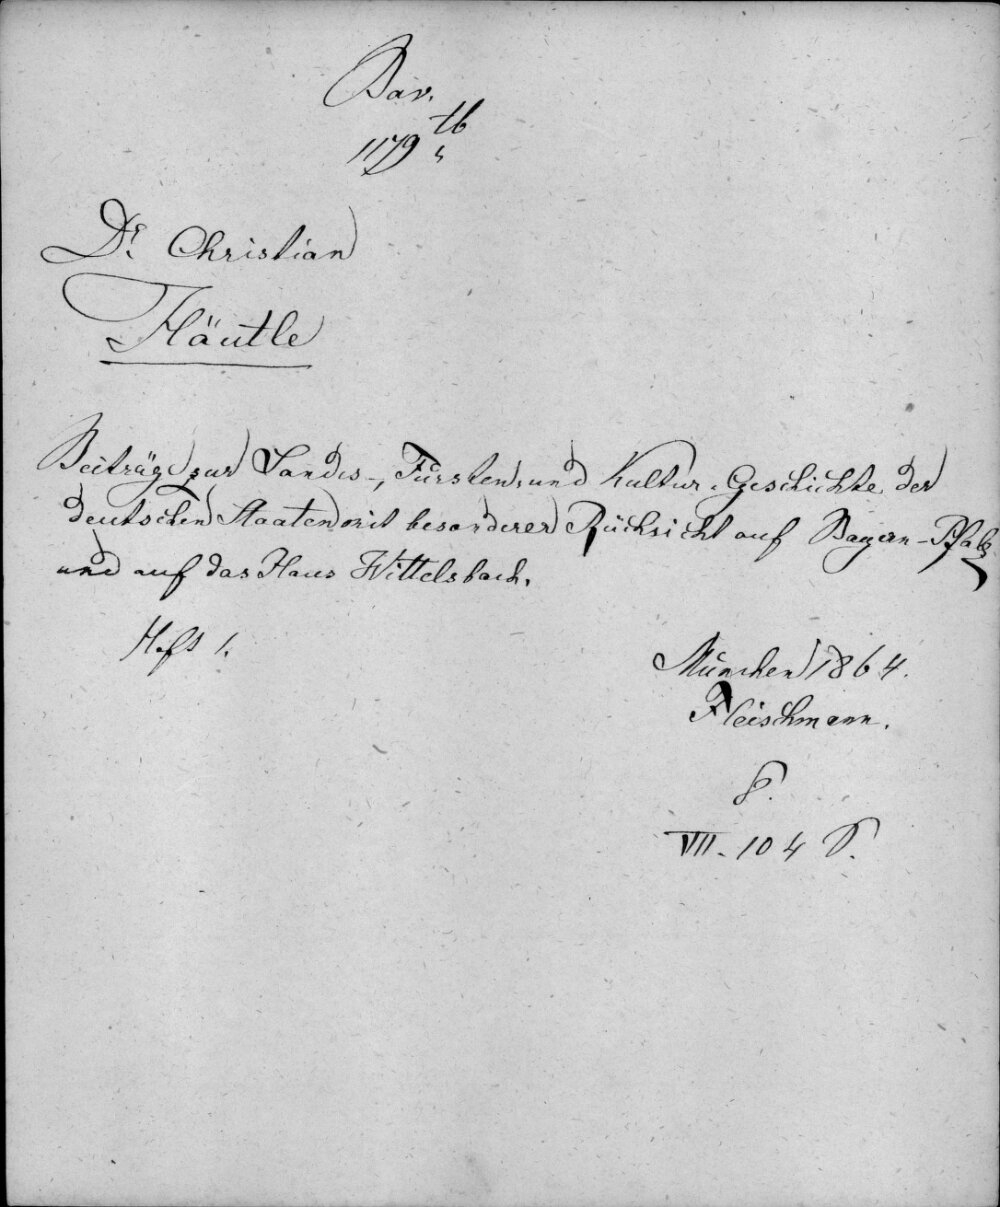 Bav.
1179 tb
Dr. Christian
Häutle
Beiträge zur Landes-, Fürsten, und Kultur-Geschichte der
deutschen Staaten mit besonderer Rücksicht auf Bayern-Pfalz
und auf das Haus Wittelsbach.
Heft 1.
München 1864.
Fleischmann.
8.
VII. 104 S.